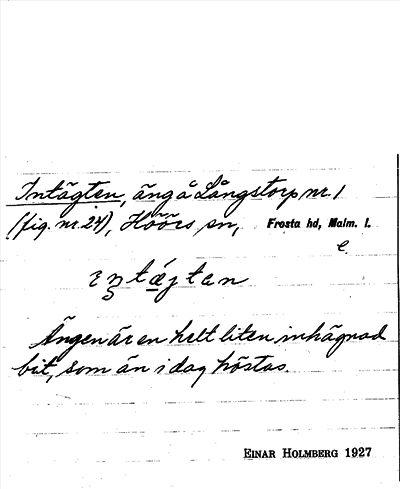 Intägten, äng å Långstorp nr. 1
(fig. nr. 24), Höörs sn, Frosta hd, Malm. l.
e.
Ängen är en helt liten inhägnad
bit, som än i dag höstas.
EINAR HOLMBERG 1927